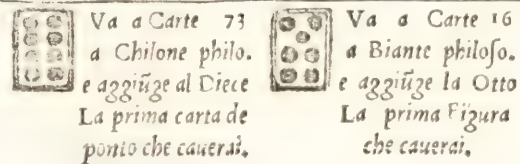 Va a Carte 73
a Chilone philo.
e aggiũge al Diece
La prima carta de
ponto che cauerai.
Va a Carte 16
a Biante philoſo.
e aggiũge la Otto
La prima Figura
che cauerai.